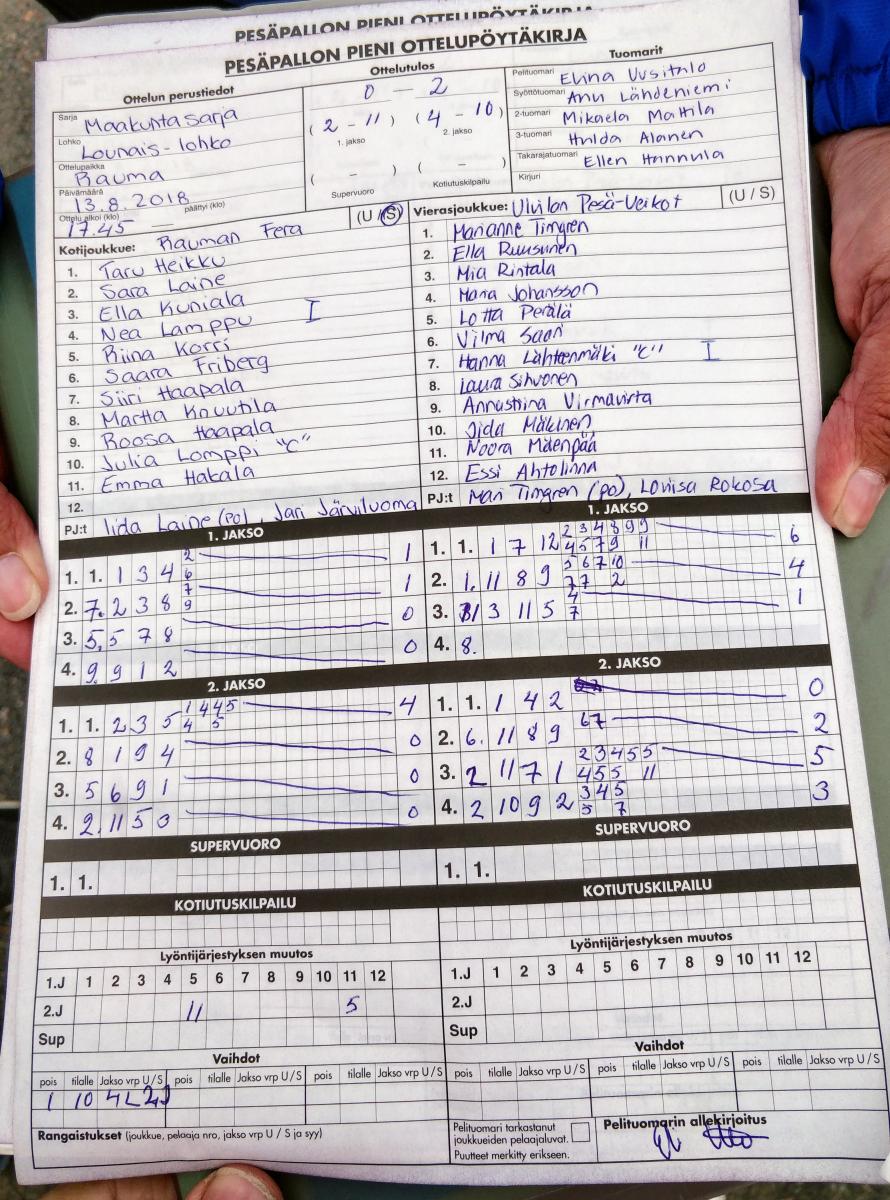 PESÄPALLON PIENI OTTELUPÖYTÄKIRJA
PESÄPALLON PIENI OTTELUPÖYTÄKIRJA
Ottelun perustiedot
Sarja Maakuntasarja
Lohko Lounais-lohko
Ottelupaikka Rauma
Päivämäärä 13.8.2018
Ottelu alkoi (klo) 17.45 päättyi (klo)
Ottelutulos
0 - 2
(2 - 11) (4 - 10)
1. jakso 2. jakso
( - ) ( - )
Supervuoro Kotiutuskilpailu
Tuomarit
Pelituomari Elina Uusitalo
Syöttötuomari Anu Lähdeniemi
2-tuomari Mikaela Mattila
3-tuomari Hulda Alanen
Takarajatuomari Ellen Hannula
Kirjuri
Kotijoukkue: Rauman Fera (U / S)
1. Taru Heikku
2. Sara Laine
3. Ella Kuniala
4. Nea Lamppu I
5. Riina Korri
6. Saara Friberg
7. Siiri Haapala
8. Martta Knuutila
9. Roosa Haapala
10. Julia Lomppi "C"
11. Emma Hakala
12.
PJ:t Iida Laine (po), Jari Järviluoma
Vierasjoukkue: Ulvilan Pesä-Veikot (U / S)
1. Marianne Timgren
2. Ella Ruusunen
3. Mia Rintala
4. Johansson
5. Lotta Perälä
6. Vilma Saari
7. Hanna Lähteenmäki "C" I
8. Laura Sihvonen
9. Annastiina Virmavirta
10. Iida Mäkinen
11. Noora Mäenpää
12. Essi Ahtolinna
PJ:t Mari Timgren (po), Loviisa Rokosa
1. JAKSO
1. 1. 1 3 4 2 6 1
2. 7. 2 3 8 7 9 1
3. 5. 5 7 8 0
4. 9. 9 1 2 0
2. JAKSO
1. 1. 2 3 5 1 4 4 5 4 5 4
2. 8 1 9 4 0
3. 5 6 9 1 0
4. 2. 11 5 0 0
SUPERVUORO
1. 1.
KOTIUTUSKILPAILU
1. JAKSO
1. 1. 1 7 12 2 3 4 8 9 9 4 5 7 9 11 6
2. 1. 11 8 9 5 6 7 10 7 7 2 4
3. 3 11 5 4 7 1
4. 8.
2. JAKSO
1. 1. 1 4 2 0
2. 6. 11 8 9 6 7 2
3. 2 11 7 1 2 3 4 5 5 4 5 5 11 5
4. 2 10 9 2 3 4 5 5 7 3
SUPERVUORO
1. 1.
KOTIUTUSKILPAILU
Lyöntijärjestyksen muutos
1.J 1 2 3 4 5 6 7 8 9 10 11 12
2.J 11 5
Sup
Lyöntijärjestyksen muutos
1.J 1 2 3 4 5 6 7 8 9 10 11 12
2.J
Sup
Vaihdot
pois tilalle Jakso vrp U / S pois tilalle Jakso vrp U / S pois tilalle Jakso vrp U / S
1 10 4L 2J
Vaihdot
pois tilalle Jakso vrp U / S pois tilalle Jakso vrp U / S pois tilalle Jakso vrp U / S
Rangaistukset (joukkue, pelaaja nro, jakso vrp U / S ja syy)
Pelituomari tarkastanut
joukkueiden pelaajaluvat.
Puutteet merkitty erikseen.
Pelituomarin allekirjoitus